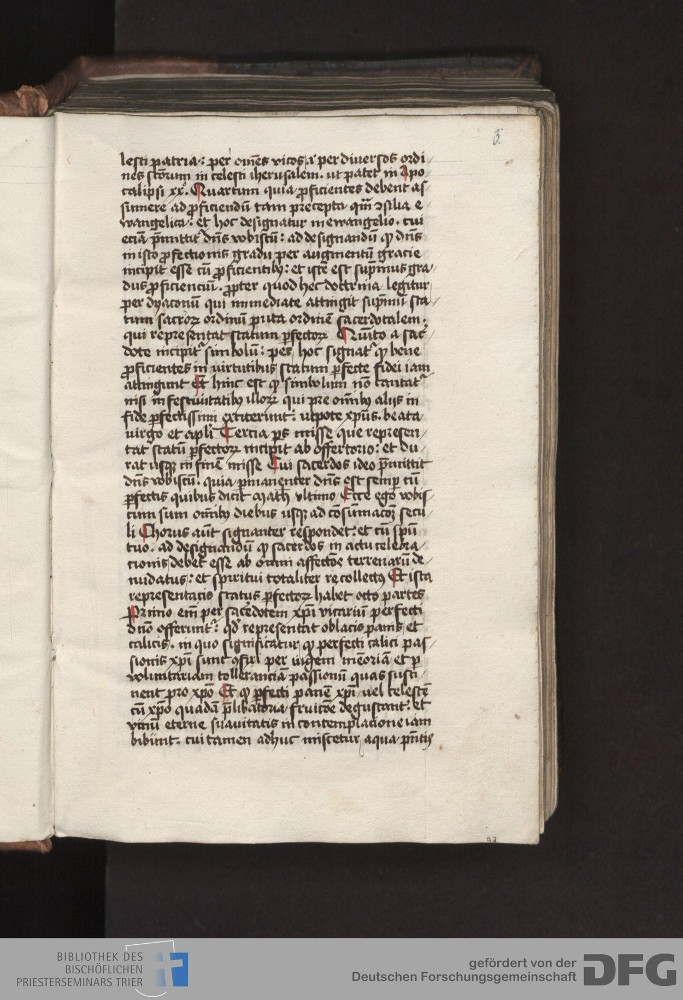 3
lesti patria: per om̃es vicos .i. per diuersos ordi
nes sc̃torum in celesti iherusalem. ut patet in Apo
calipsi xx. Quartum quia ꝓficientes debent as
sumere ad ꝓficiendũ tam precepta qm̃ ꝯsilia e
wangelica: et hoc designatur in ewangelio. cui
eciã p̃mittit᷑ dñs vobiscũ: ad designandũ ꝙ dñs
in isto ꝓfectionis gradu per augmentũ gracie
incipit esse cũ ꝓficientibꝰ: et iste est sup̃mus gra
dus ꝓficienciũ. ꝓpter quod hec doctrina legitur
per dyaconũ qui immediate attingit sup̃mũ sta
tum sacroꝝ ordinũ puta ordinẽ sacerdotalem.
qui representat statum ꝑfectoꝝ Quinto a sac̾
dote incipit᷑ simbolũ: per hoc signat᷑ ꝙ bene
ꝓficientes in virtutibus statum ꝑfecte fidei iam
attingunt Et hinc est ꝙ simbolum nõ cantat᷑
nisi in festiuitatibꝰ illoꝝ qui pre om̃ibꝰ aliis in
fide ꝑfectissimi extiterunt: utpote xp̃us. beata
virgo et apl̃i Tercia ps misse que represen
tat statũ ꝑfectoꝝ incipit ab offertorio: et du
rat usqꝫ in finẽ misse Cui sacerdos ideo p̃mittit
dñs vobiscũ. quia ꝑmanenter dñs est semp̱ cũ
ꝑfectis quibus dicit math̾ vltimo Ecce ego vobis
cum sum om̃ibꝰ diebus usqꝫ ad cõsummacõꝫ secu
li Chorus aũt signanter respondet: et cũ sp̃u
tuo. ad designandũ ꝙ sacerdos in actu celebra
cionis debet esse ab om̃i affectõe terrenarũ de
nudatus: et spiritui totaliter recollectꝰ Et ista
representacio status ꝑfectoꝝ habet octo partes
Primo em̃ per sacerdotem xp̃i vicariũ perfecti
dño offerunt᷑: qd̾ representat oblacio panis et
calicis. in quo significatur ꝙ perfecti calici pas
sionis xp̃i sunt per iugem memoriã et ꝑ
voluntariam tolleranciã passionũ quas susti
nent pro xp̃o Et ꝙ ꝑfecti panẽ xp̃i vel celestẽ
cũ xp̃o quadã p̃libatoria fruicõe degustant: et
vinũ eterne suauitatis in contemplacione iam
bibunt. cui tamen adhuc miscetur aqua p̃ntis
BIBLIOTHEK DES
BISCHÖFLICHEN
PRIESTERSEMINARS TRIER
gefördert von der
Deutschen Forschungsgemeinschaft
DFG